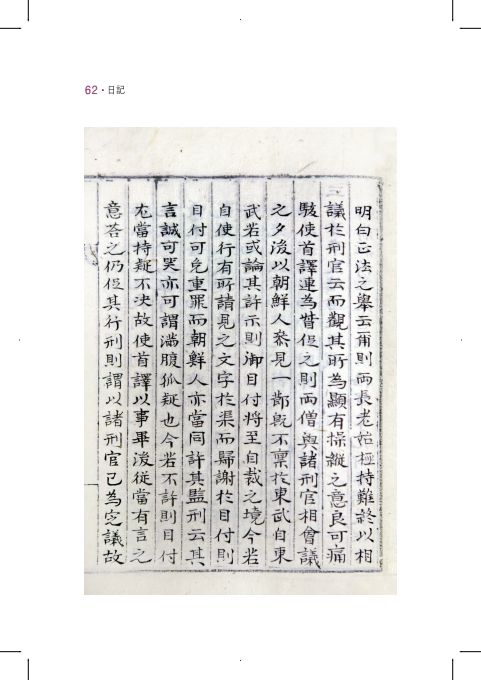 62・日記
明白正法之擧云爾則兩長老始極持難終以相
議於刑官云而觀其所為顯有操縱之意良可痛
駭使首譯連為督促之則兩僧與諸刑官相會議
之夕後以朝鮮人參見一節旣不禀於東武自東
武若或論其許示則御目付將至自裁之境今若
自使行有所請見之文字於渠而歸謝於目付則
目付可免重罪而朝鮮人亦當同許其監刑云其
言誠可笑亦可謂滿腹狐疑也今若不許則目付
尤當持疑不决故使首譯以事畢後從當有言之
意答之仍促其行刑則謂以諸刑官已為完議故